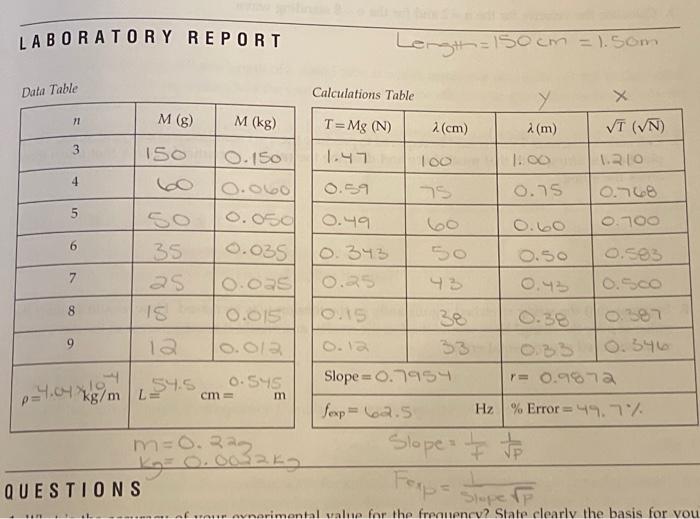 LABORATORY REPORT
Length = 150 cm = 1.50m
Data Table
Calculations Table
y x
n M (g) M (kg) T=Mg (N) λ (cm) λ (m) √T (√N)
3 150 0.150 1.47 100 1.00 1.210
4 60 0.060 0.59 75 0.75 0.768
5 50 0.050 0.49 60 0.60 0.700
6 35 0.035 0.343 50 0.50 0.583
7 25 0.025 0.25 43 0.43 0.500
8 15 0.015 0.15 38 0.38 0.387
9 12 0.012 0.12 33 0.33 0.346
ρ = 4.04 × 10⁻⁴ kg/m L = 54.5 cm = 0.545 m Slope = 0.7954 r = 0.9872
fexp = 62.5 Hz % Error = 49.7%
m = 0.22g
kg = 0.0022kg
Slope = 1/f 1/√ρ
Fexp = 1/Slope √ρ
QUESTIONS
experimental value for the frequency? State clearly the basis for you